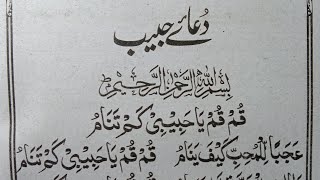 دُعائے حبیب
بِسْمِ اللهِ الرَّحْمٰنِ الرَّحِيْمِ
قُمْ قُمْ يَا حَبِيْبِيْ كَمْ تَنَامُ
عَجَبًا لِّلْمُحِبِّ كَيْفَ يَنَامُ قُمْ قُمْ يَا حَبِيْبِيْ كَمْ تَنَامُ